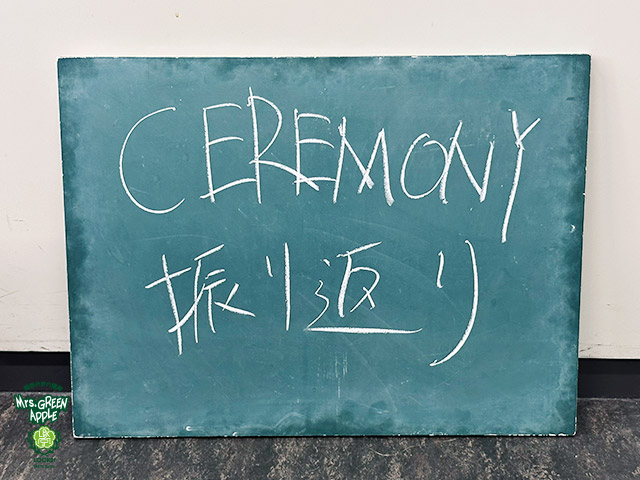 CEREMONY
振り返り
Mrs. GREEN
APPLE